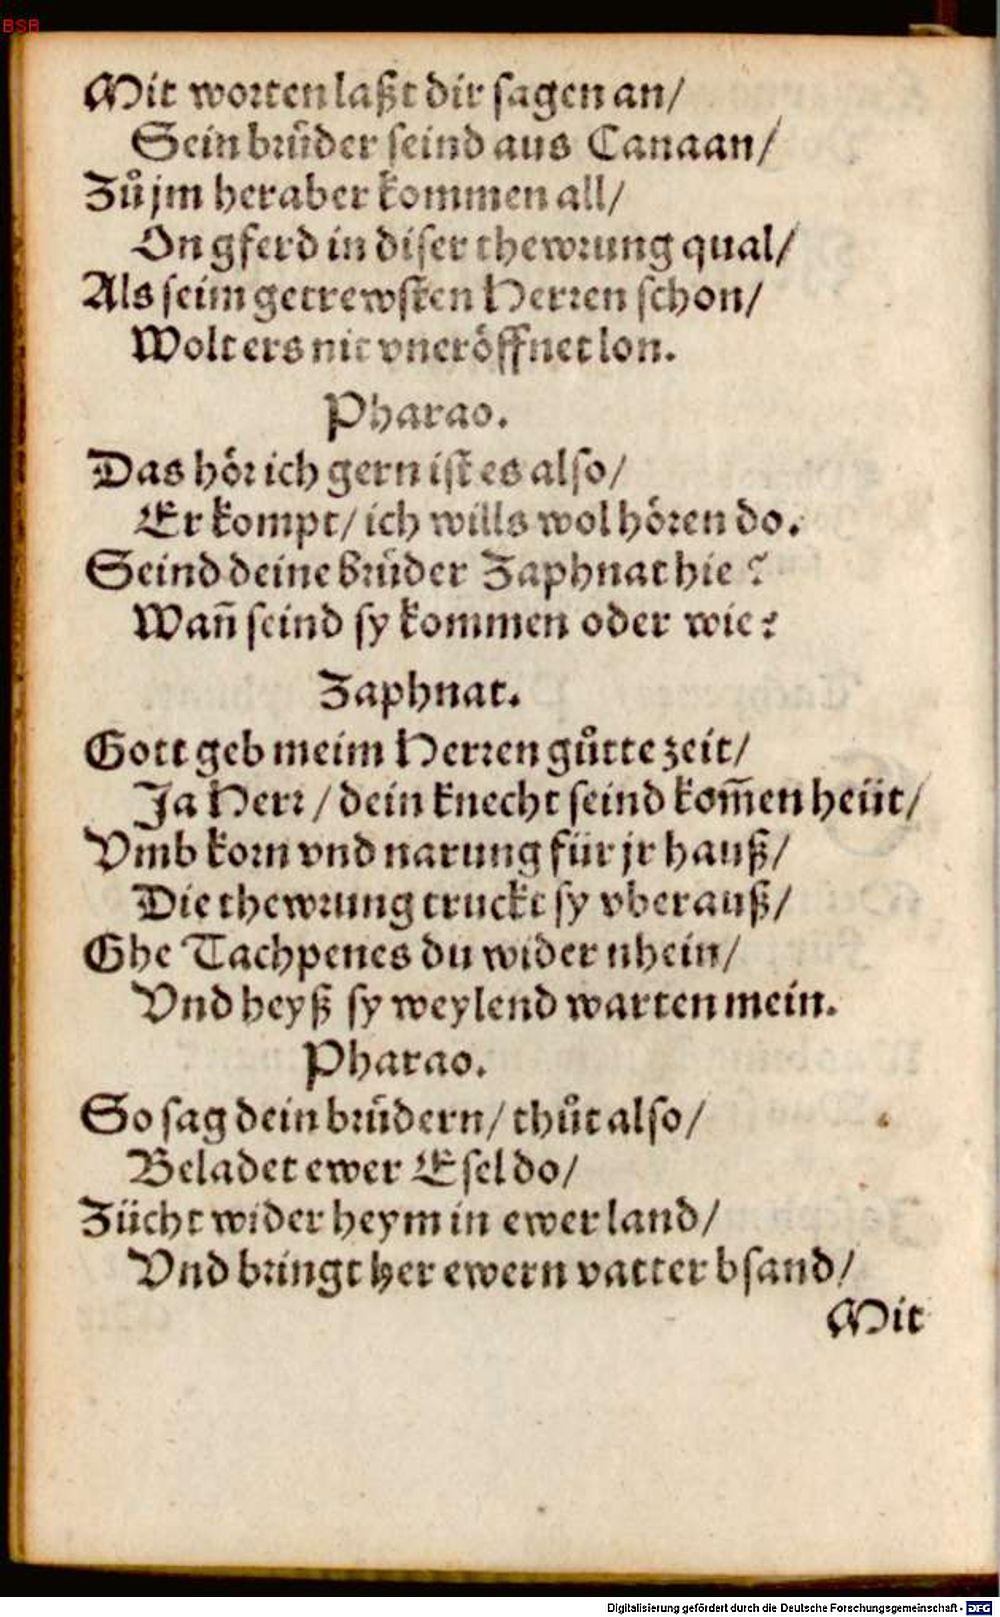 BSB
Mit worten laßt dir sagen an/
Sein brüder seind aus Canaan/
Zů jm heraber kommen all/
On gferd in diser thewrung qual/
Als seim getrewsten Herren schon/
Wolt ers nit vneröffnet lon.
Pharao.
Das hör ich gern ist es also/
Er kompt/ ich wills wol hören do.
Seind deine brüder Zaphnat hie?
Wañ seind sy kommen oder wie?
Zaphnat.
Gott geb meim Herren gůtte zeit/
Ja Herr/ dein knecht seind kom̃en heüt/
Vmb korn vnd narung für jr hauß/
Die thewrung truckt sy vberauß/
Ghe Tachpenes du wider nhein/
Vnd heyß sy weylend warten mein.
Pharao.
So sag dein brüdern/ thůt also/
Beladet ewer Esel do/
Zücht wider heym in ewer land/
Vnd bringt her ewern vatter bsand/
Mit
Digitalisierung gefördert durch die Deutsche Forschungsgemeinschaft - DFG